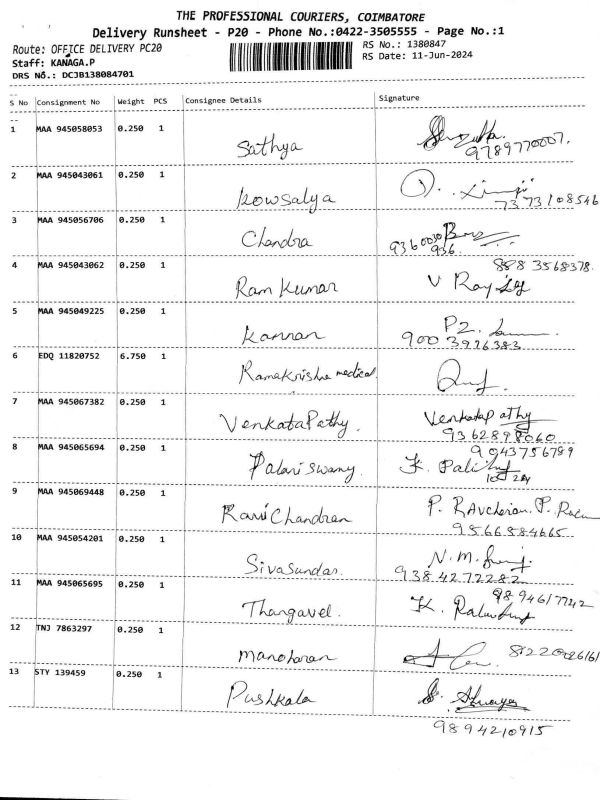 THE PROFESSIONAL COURIERS, COIMBATORE
Delivery Runsheet - P20 - Phone No.:0422-3505555 - Page No.:1
Route: OFFICE DELIVERY PC20 RS No.: 1380847
Staff: KANAGA.P RS Date: 11-Jun-2024
DRS No.: DCJB138084701
S No Consignment No Weight PCS Consignee Details Signature
1 MAA 945058053 0.250 1 Sathya
9789770007.
2 MAA 945043061 0.250 1 Kowsalya
7373108546
3 MAA 945056706 0.250 1 Chandra
936
8883568378.
4 MAA 945043062 0.250 1 Ram Kumar V
5 MAA 945049225 0.250 1 Kannan
900 3926383
6 EDQ 11820752 6.750 1 Ramakrishna medical.
7 MAA 945067382 0.250 1 VenkataPathy. Venkatapathy
9362898060
9043756789
8 MAA 945065694 0.250 1 Palaniswamy. K.
9 MAA 945069448 0.250 1 Ravi Chandran P.
9566584665
10 MAA 945054201 0.250 1 Sivasundar. N.M.
9384272282
9894617742
11 MAA 945065695 0.250 1 Thangavel. K.
12 TNJ 7863297 0.250 1 Manoharan
13 STY 139459 0.250 1 Pushkala
9894210915